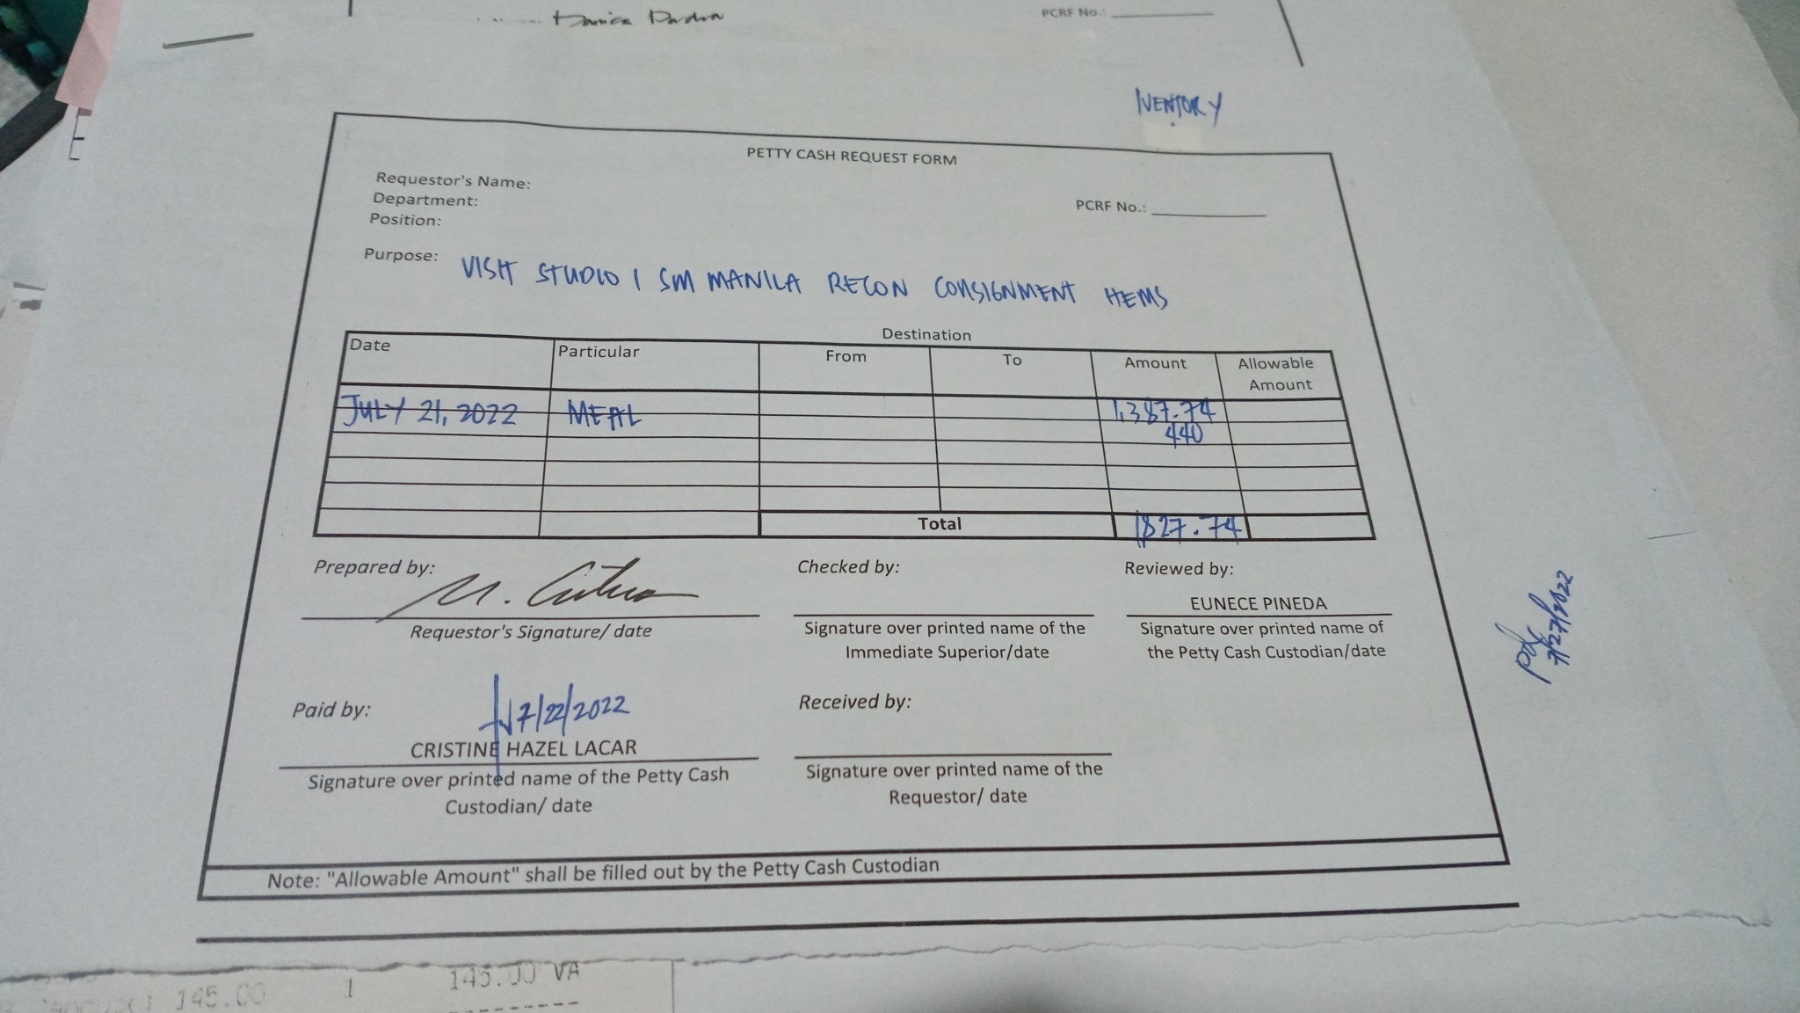 PCRF No.:
IVENTORY
PETTY CASH REQUEST FORM
Requestor's Name:
Department:
Position:
PCRF No.:
Purpose: VISIT STUDIO 1 SM MANILA RECON CONSIGNMENT ITEMS
Destination
Date Particular From To Amount Allowable Amount
JULY 21, 2022 MEAL 1,387.74
440
Total 1827.74
Prepared by: Checked by: Reviewed by:
EUNECE PINEDA
Requestor's Signature/ date
Signature over printed name of the Immediate Superior/date
Signature over printed name of the Petty Cash Custodian/date
7/27/2022
Paid by: Received by:
7/22/2022
CRISTINE HAZEL LACAR
Signature over printed name of the Petty Cash Custodian/ date
Signature over printed name of the Requestor/ date
Note: "Allowable Amount" shall be filled out by the Petty Cash Custodian
145.00 1 145.00 VA